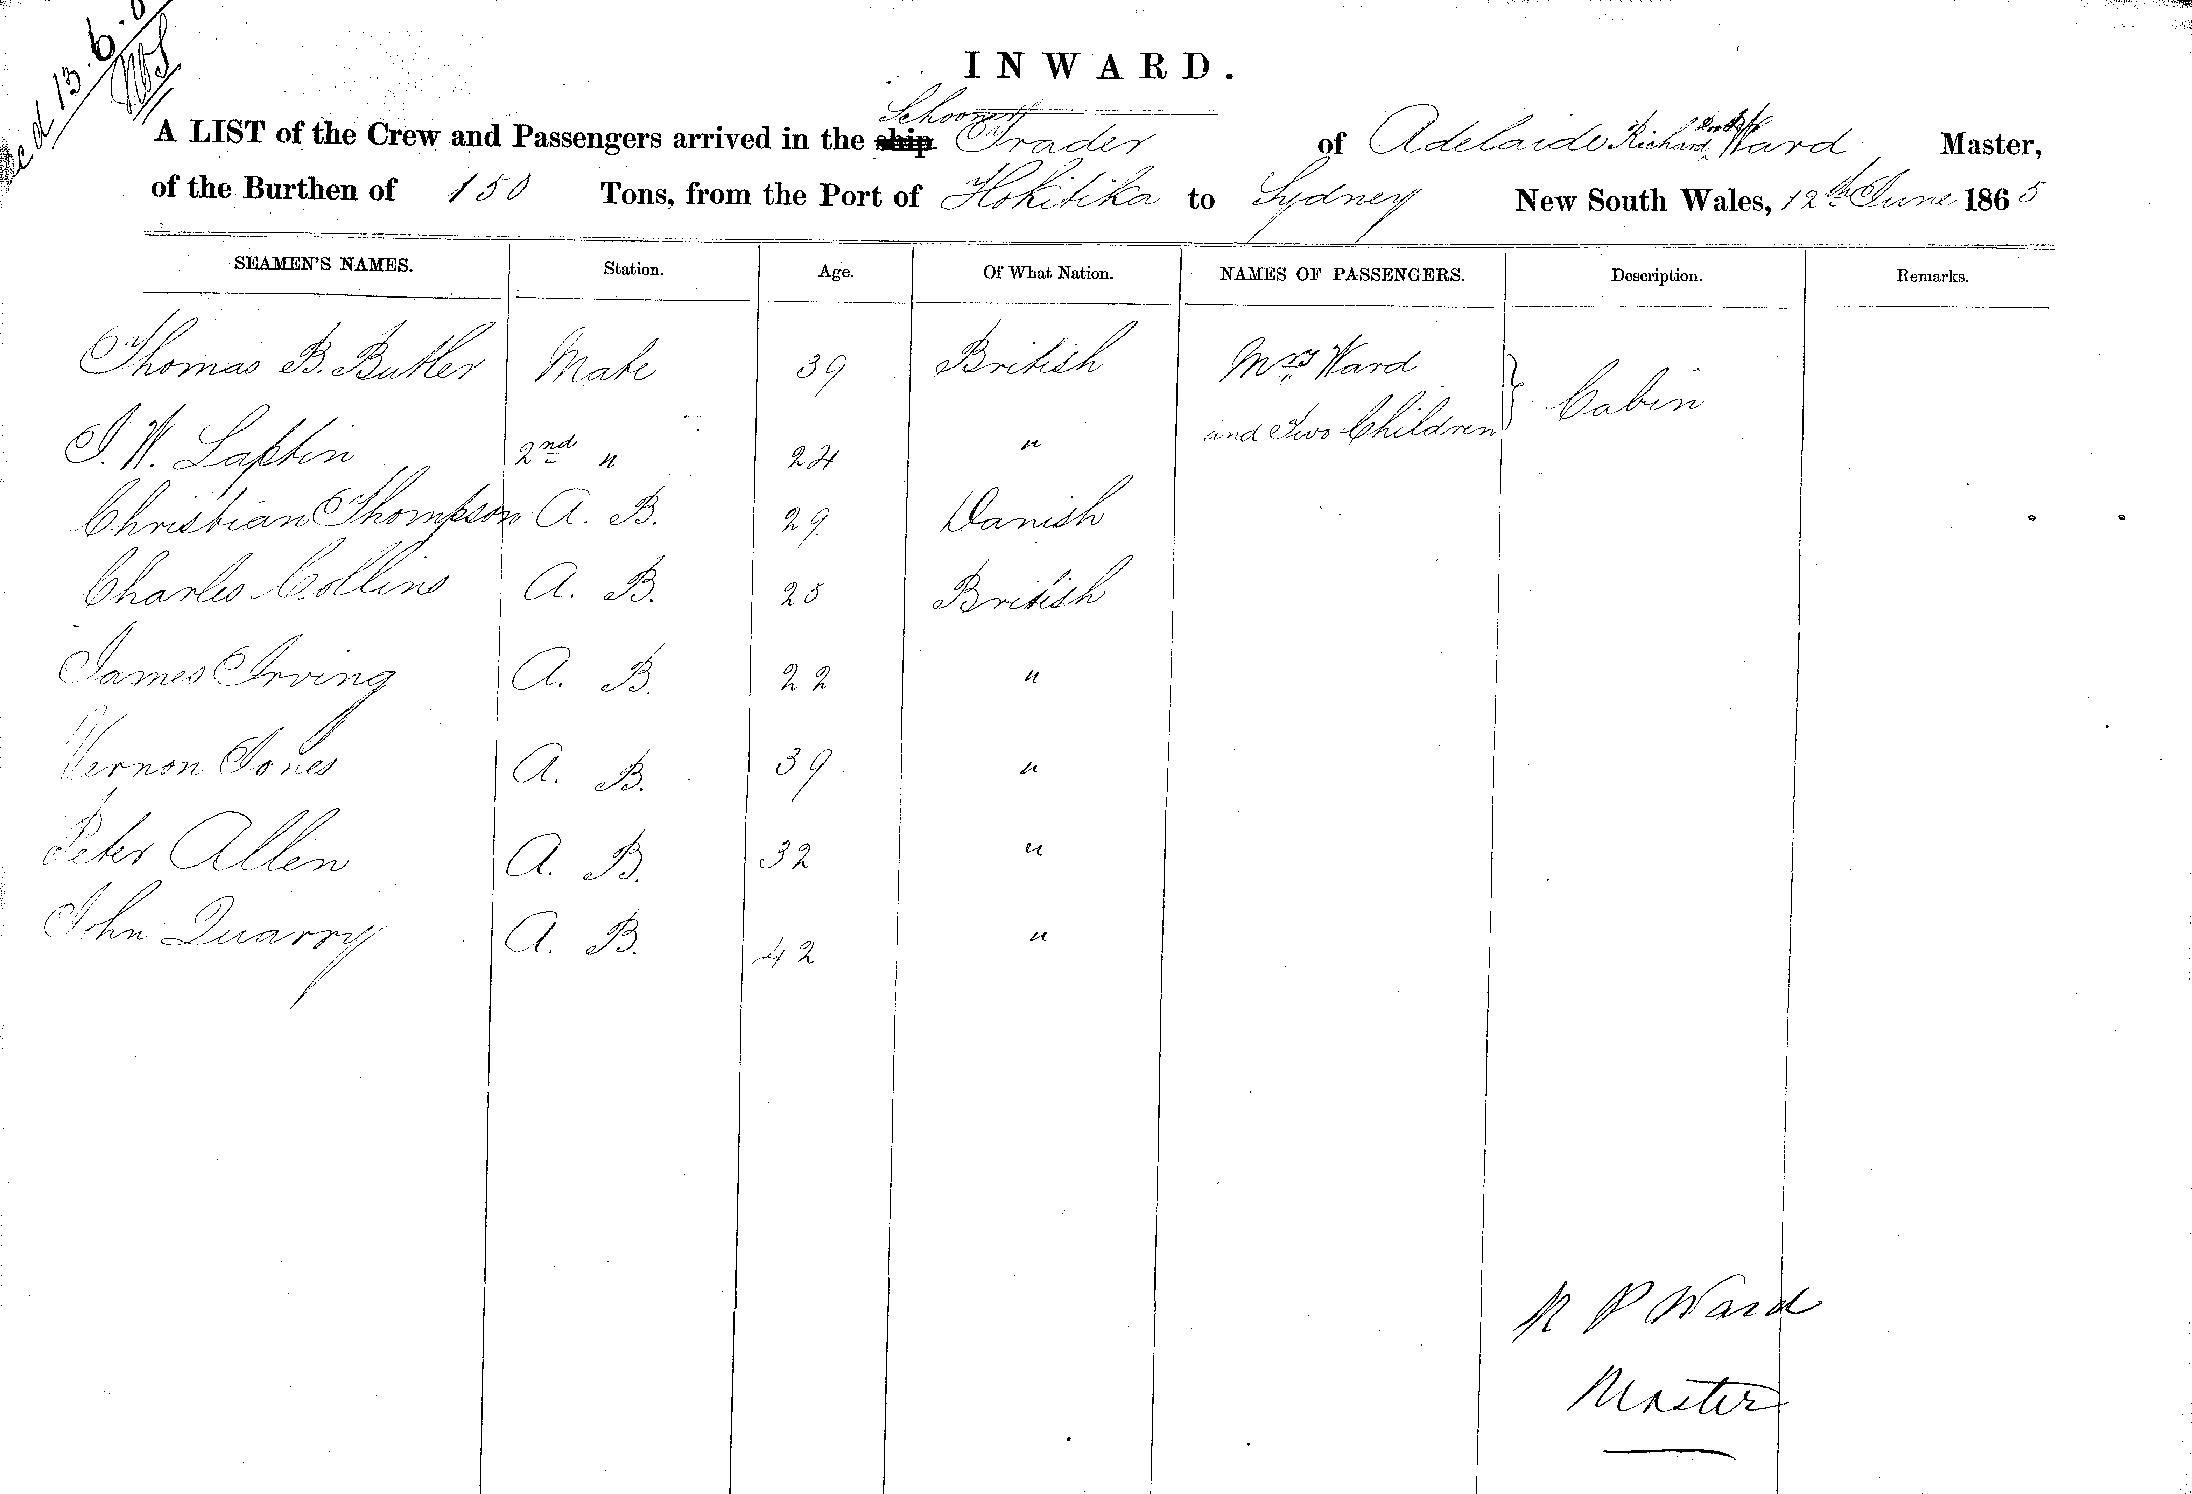 13.6.
WS
INWARD.
A LIST of the Crew and Passengers arrived in the ship Schooner Trader of Adelaide Richard Ward Master,
of the Burthen of 150 Tons, from the Port of Hokitika to Sydney New South Wales, 12th June 1865
SEAMEN'S NAMES. Station. Age. Of What Nation. NAMES OF PASSENGERS. Description. Remarks.
Thomas B. Butler Mate 39 British Mrs Ward
and Two Children } Cabin
J. W. Laptin 2nd " 24 "
Christian Thompson A. B. 29 Danish
Charles Collins A. B. 25 British
James Irving A. B. 22 "
Vernon Jones A. B. 39 "
Peter Allen A. B. 32 "
John Quarry A. B. 42 "
R P Ward
Master